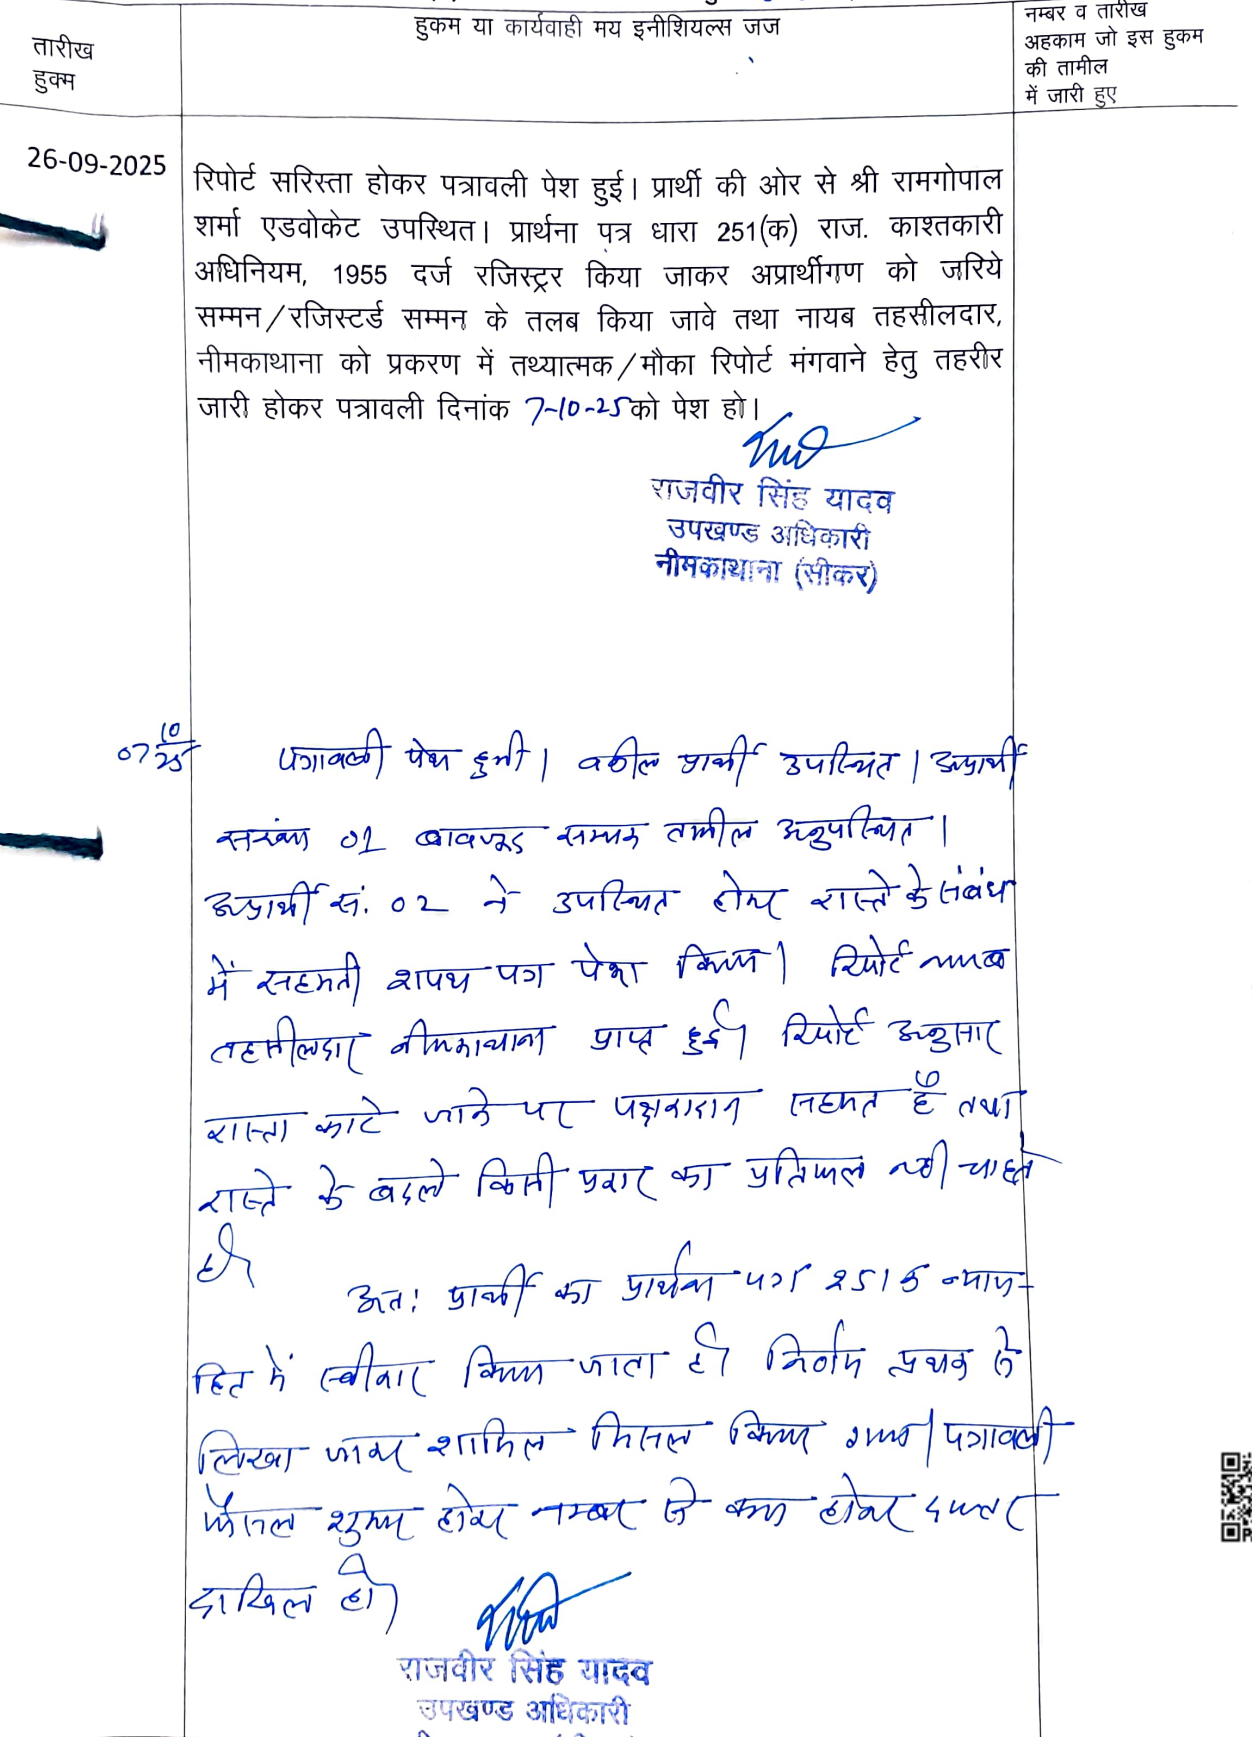 हुकम या कार्यवाही मय इनीशियल्स जज
नम्बर व तारीख
अहकाम जो इस हुकम
की तामील
में जारी हुए
तारीख
हुक्म
26-09-2025
रिपोर्ट सरिस्ता होकर पत्रावली पेश हुई। प्रार्थी की ओर से श्री रामगोपाल
शर्मा एडवोकेट उपस्थित। प्रार्थना पत्र धारा 251(क) राज. काश्तकारी
अधिनियम, 1955 दर्ज रजिस्ट्रर किया जाकर अप्रार्थीगण को जरिये
सम्मन/रजिस्टर्ड सम्मन के तलब किया जावे तथा नायब तहसीलदार,
नीमकाथाना को प्रकरण में तथ्यात्मक/मौका रिपोर्ट मंगवाने हेतु तहरीर
जारी होकर पत्रावली दिनांक 7-10-25 को पेश हो।
राजवीर सिंह यादव
उपखण्ड अधिकारी
नीमकाथाना (सीकर)
07 10/25 पत्रावली पेश हुयी। वकील प्रार्थी उपस्थित। अप्रार्थी
संख्या 01 बावजूद सम्मन तामील अनुपस्थित।
अप्रार्थी सं. 02 ने उपस्थित होकर रास्ते के संबंध
में सहमती शपथ पत्र पेश किया। रिपोर्ट नायब
तहसीलदार नीमकाथाना प्राप्त हुई। रिपोर्ट अनुसार
रास्ता काटे जाने पर पक्षकारान सहमत हैं तथा
रास्ते के बदले किसी प्रकार का प्रतिफल नहीं चाहते
है।
अत: प्रार्थी का प्रार्थना पत्र 251 क न्याय-
हित में स्वीकार किया जाता है। निर्णय पृथक से
लिखा जाकर शामिल मिसल किया गया। पत्रावली
फैसल शुमार होकर नम्बर से कम होकर दफ्तर
दाखिल हो।
राजवीर सिंह यादव
उपखण्ड अधिकारी